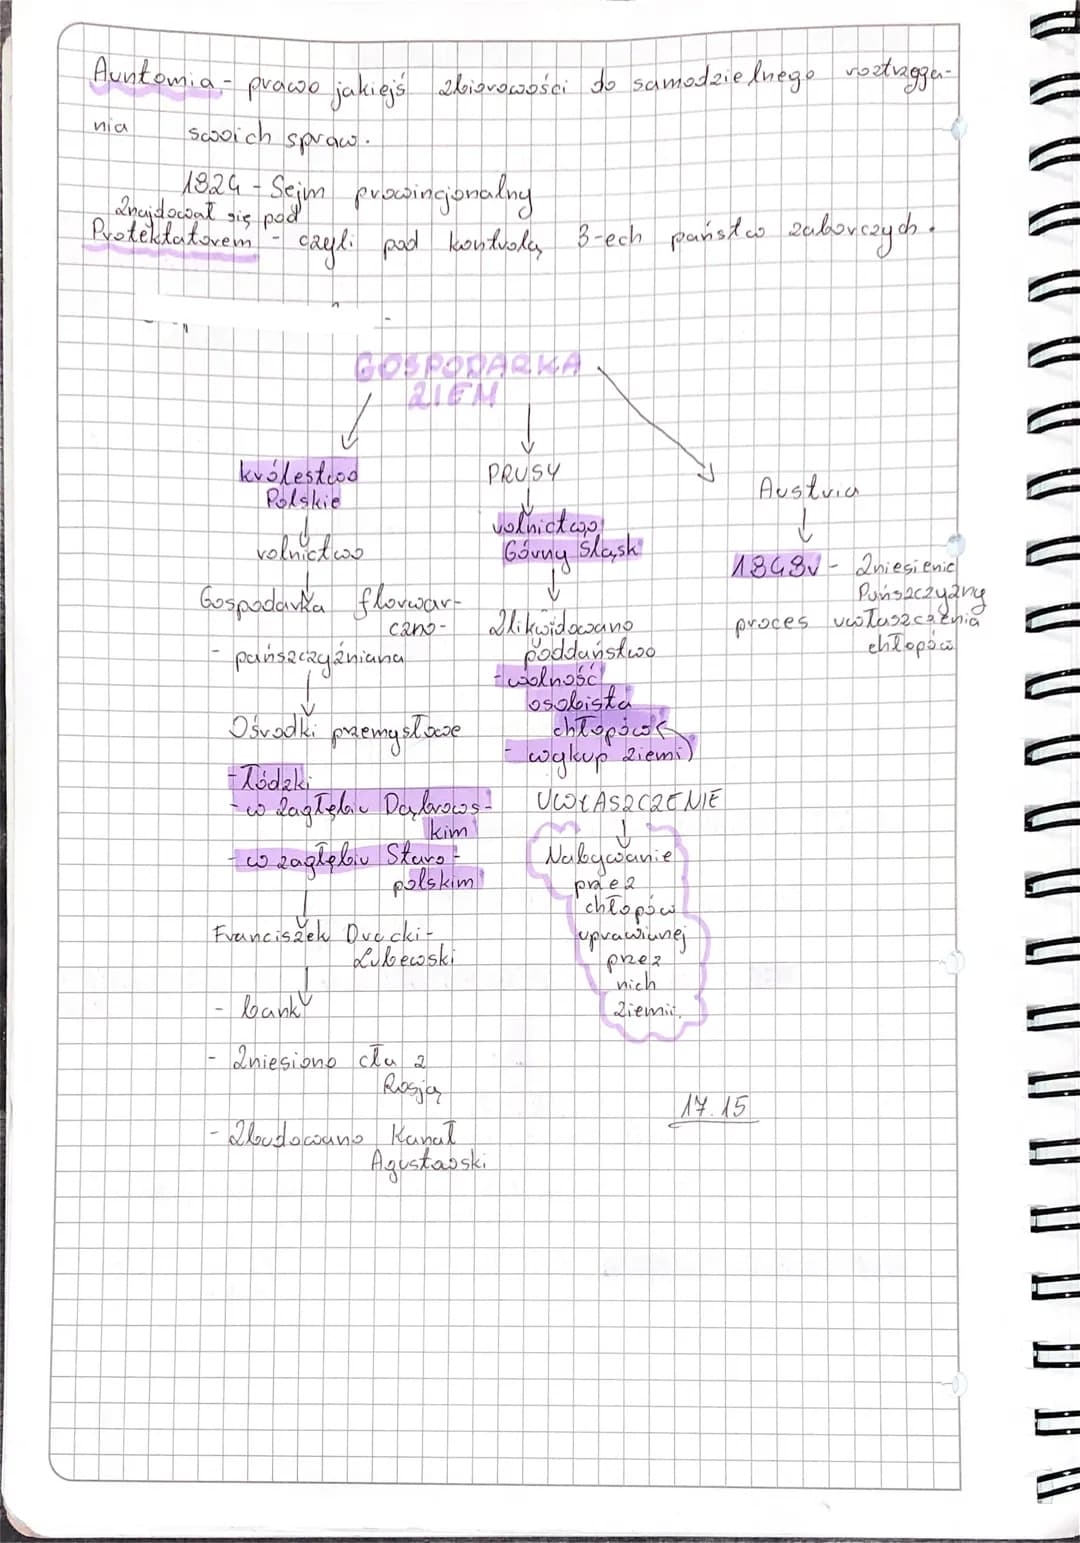 Auntomia - prawo jakiejś zbiorowości do samodzielnego roztrzyga-
nia swoich spraw.
1824 - Sejm prowincjonalny
Znajdował się pod
Protektatorem - czyli pod kontrolą 3-ech państw zaborczych.
GOSPODARKA
ZIEM
królestwo
Polskie
rolnictwo
Gospodarka florwar-
czno-
- pańszczyźniana
Ośrodki przemysłowe
- Łódzki
- w Zagłębiu Dąbrows-
kim
- w zagłębiu Staro-
polskim
Franciszek Drucki-
Lubewski
- bank
- Zniesiono cła z
Rosją
- Zbudowano Kanał
Agustowski
PRUSY
rolnictwo
Górny Śląsk
Zlikwidowano
poddaństwo
- wolność
osobista
chłopów (
- wykup ziemi)
UWŁASZCZENIE
Nabywanie
przez
chłopów
uprawianej
przez
nich
Ziemii.
Austria
1848r - Zniesienie
Pańszczyzny
proces uwłaszczenia
chłopów
17.15